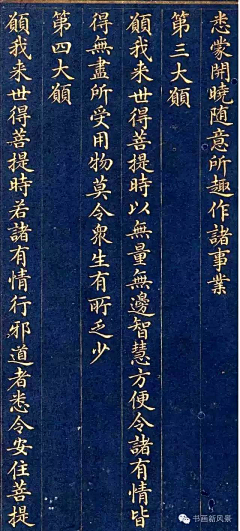 悉蒙開曉随意所趣作諸事業
第三大願
願我来世得菩提時以無量無邊智慧方便令諸有情皆
得無盡所受用物莫令衆生有所乏少
第四大願
願我来世得菩提時若諸有情行邪道者悉令安住菩提
书画新风景